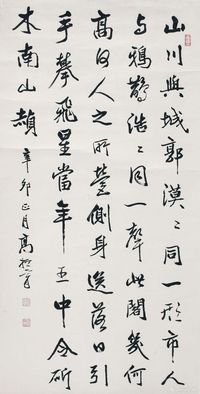 山川與城郭漠〻同一形市人
与鴉鵲浩〻同一聲此閣幾何
高何人之所營側身送落日引
手攀飛星當年王中令斫
木南山赬
辛卯正月高振霄